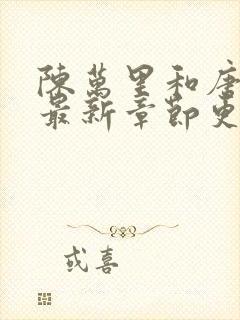 陳萬里和唐
最新章節更
或喜